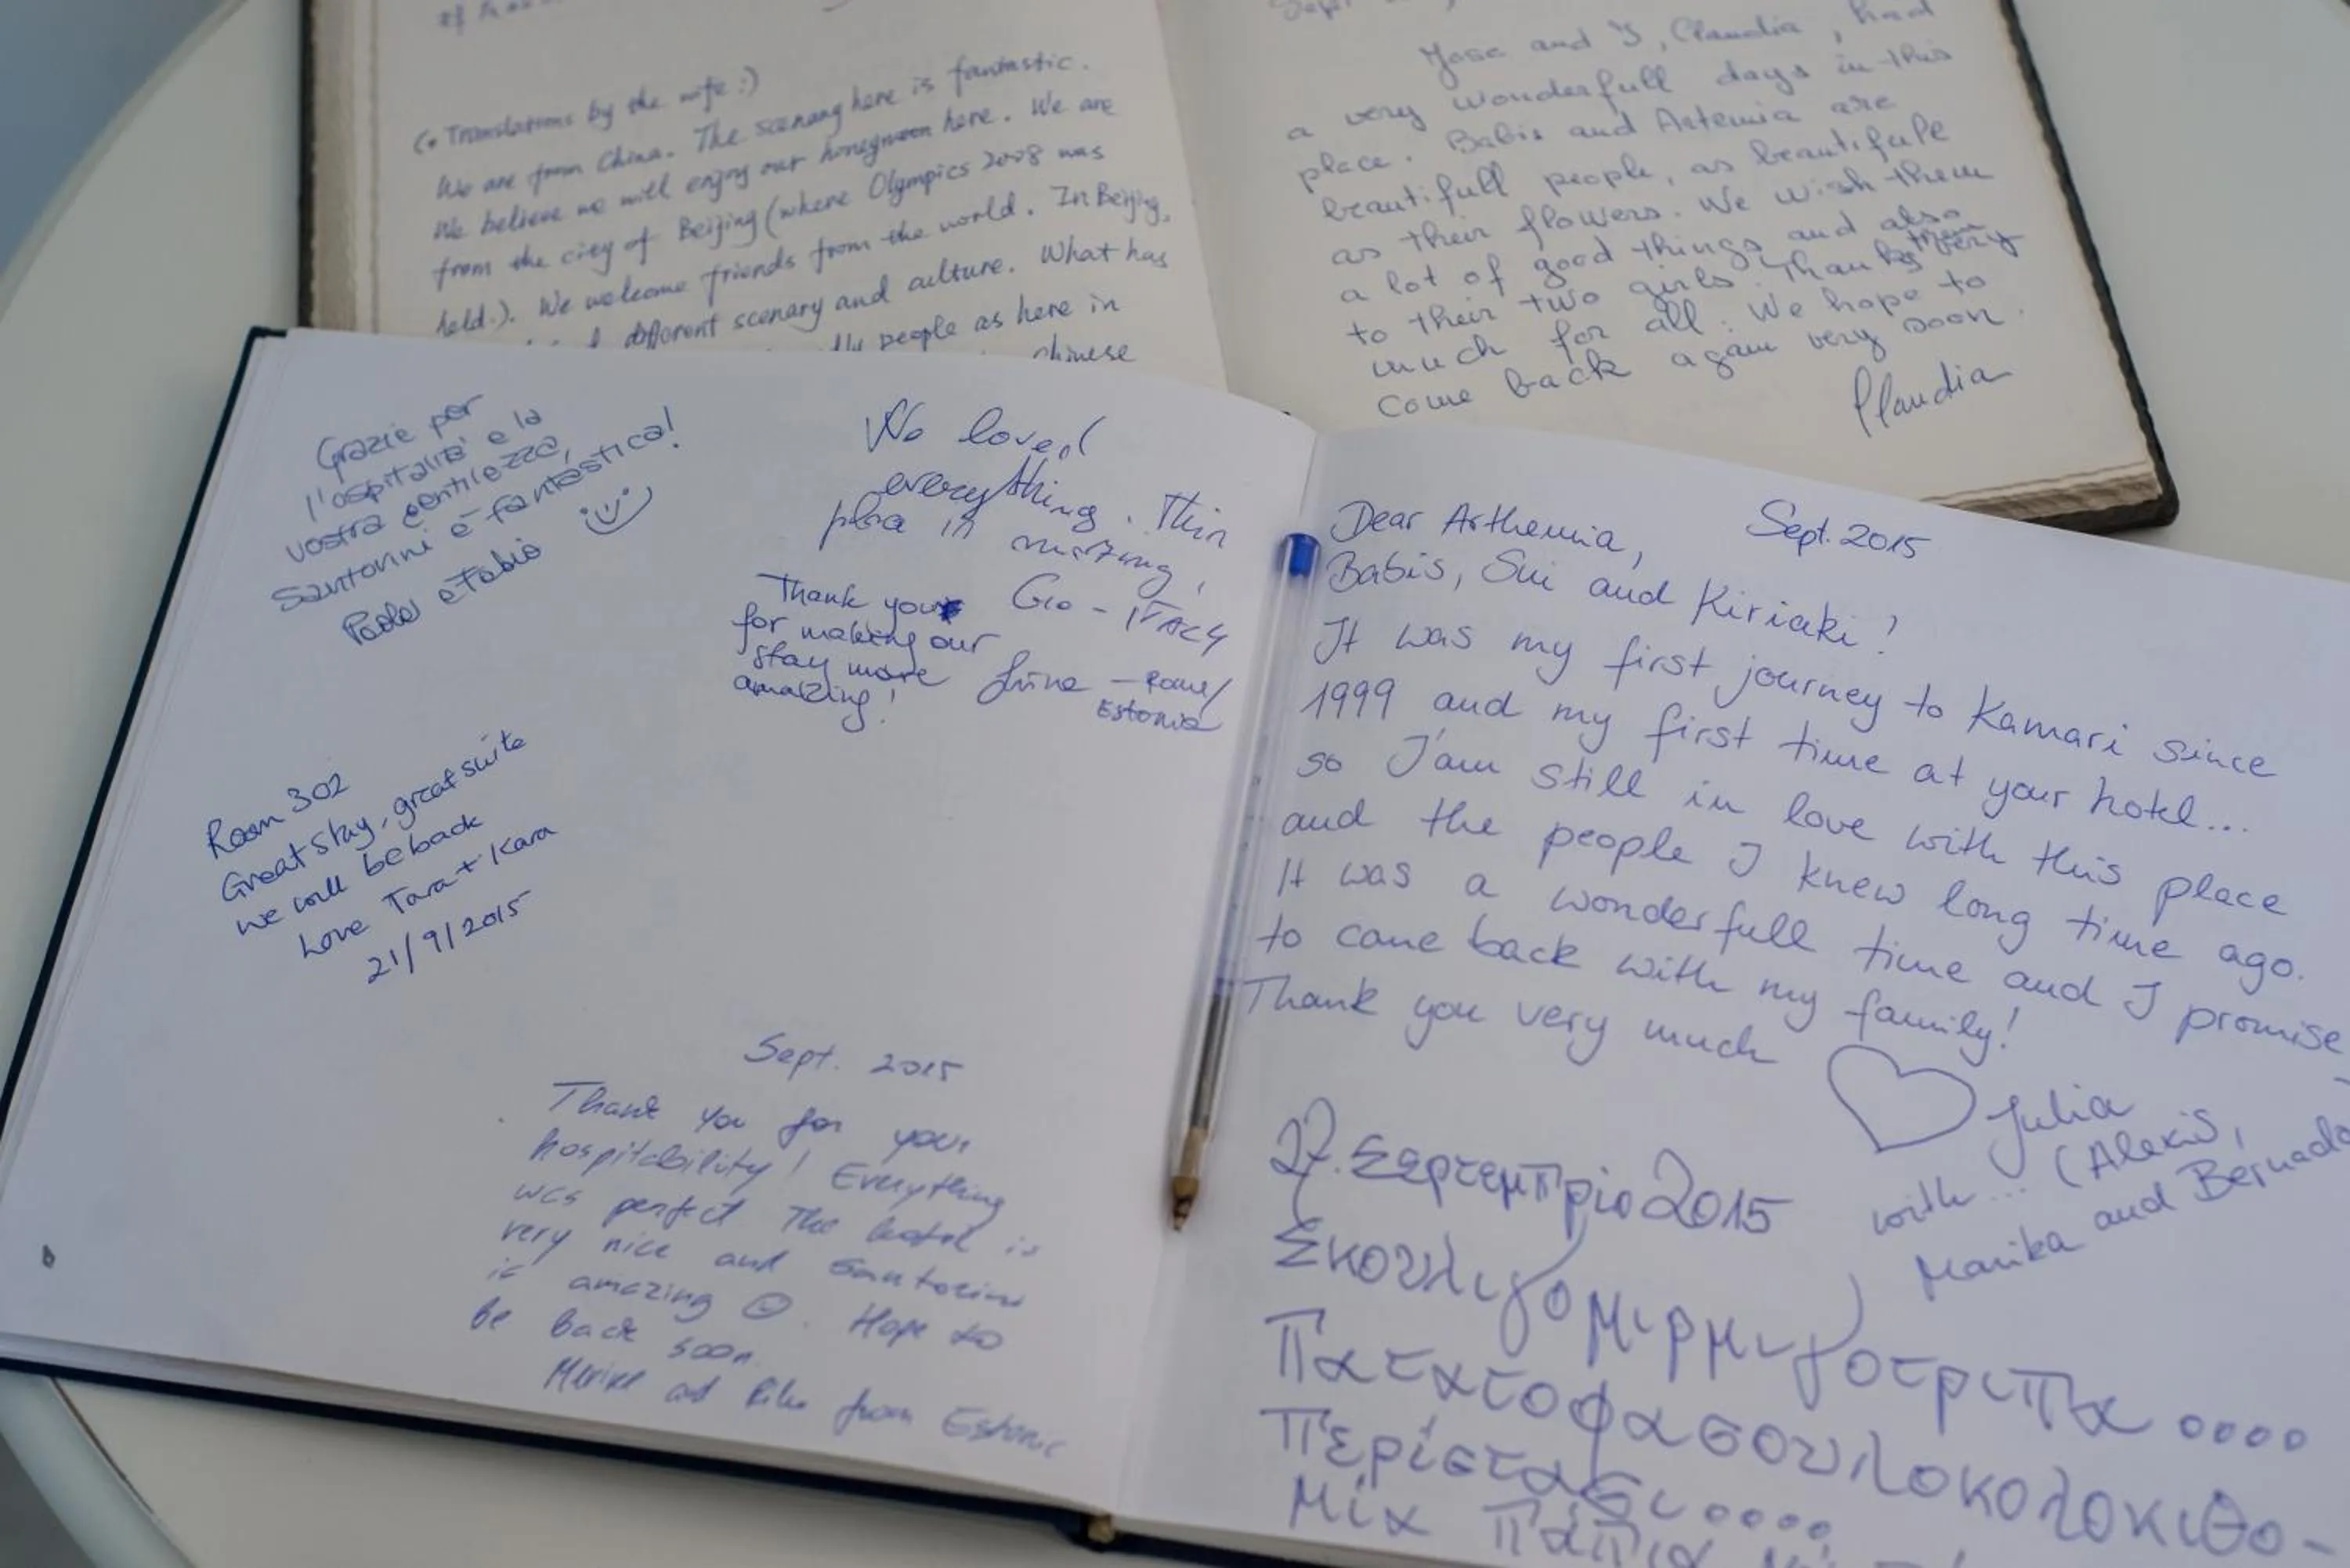 (Translations by the wife :)
We are from China. The scenary here is fantastic.
We believe we will enjoy our honeymoon here. We are
from the city of Beijing (where Olympics 2008 was
held.). We welcome friends from the world. In Beijing,
different scenary and culture. What has
people as here in
chinese
Jose and I, Claudia, had
a very wonderfull days in this
place. Babis and Artemia are
beautifull people, as beautifull
as their flowers. We wish them
a lot of good things and also
to their two girls. Thanks very
much for all. We hope to
come back again very soon.
Claudia
Grazie per
l'ospitalità e la
vostra gentilezza,
Santorini è fantastica!
Paola e Fabio
We loved
everything. This
place is amazing!
Geo - ITALY
Thank you
for making our
stay more
amazing!
- Rome/
Estonia
Room 302
Great stay, great suite
we will be back
Love Tara + Kara
21/9/2015
Sept. 2015
Thank you for your
hospitability! Everything
was perfect The hotel is
very nice and Santorini
is amazing ☺. Hope to
be back soon.
from Estonia
Dear Arthemia, Sept. 2015
Babis, Sui and Kiriaki!
It was my first journey to Kamari since
1999 and my first time at your hotel...
so I'am still in love with this place
and the people I knew long time ago.
It was a wonderfull time and I promise
to come back with my family!
Thank you very much
Julia
with... (Alexis,
Marika and
27. Σερτεμπριο 2015
Σκουλιγομιρμιγοτριπα....
Πατατοφασουλοκολοκιθο-
Περίστασι....
Μία πάπια